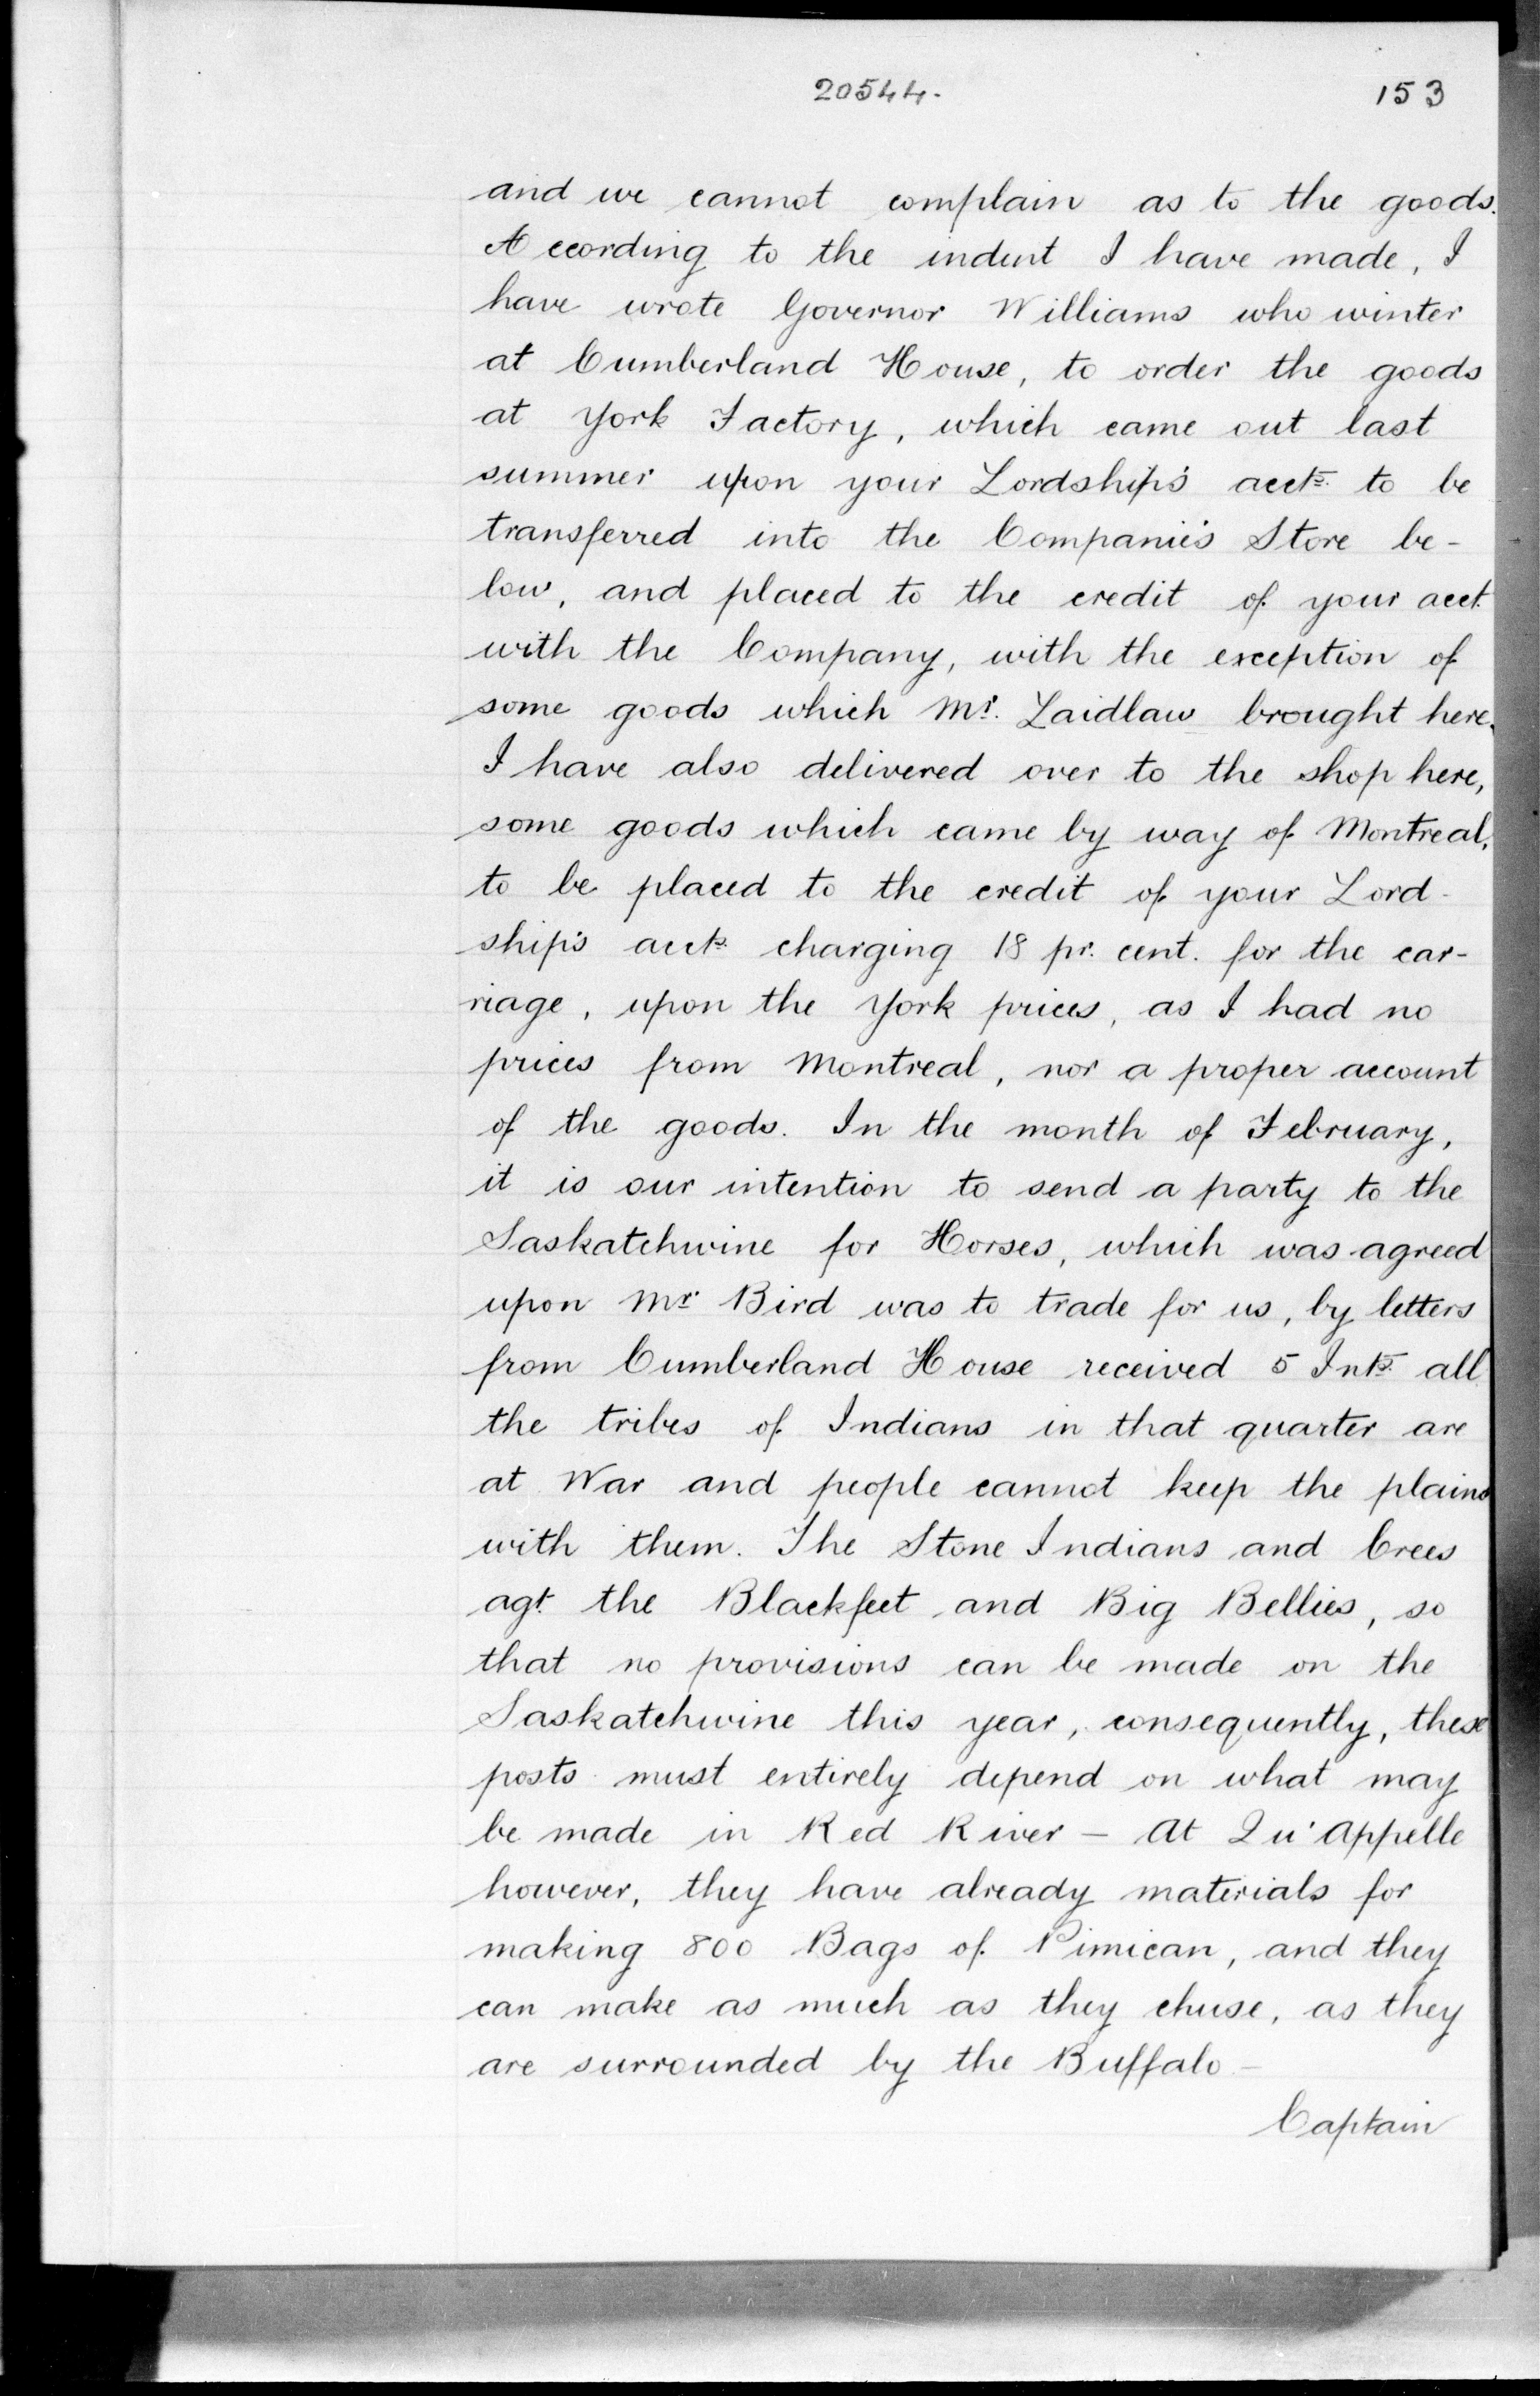 20544.
153
and we cannot complain as to the goods.
According to the indent I have made, I
have wrote Governor Williams who winter
at Cumberland House, to order the goods
at York Factory, which came out last
summer upon your Lordship's acct. to be
transferred into the Companie's Store be-
low, and placed to the credit of your acct.
with the Company, with the exception of
some goods which Mr. Laidlaw brought here.
I have also delivered over to the shop here,
some goods which came by way of Montreal,
to be placed to the credit of your Lord-
ship's acct. charging 18 pr. cent. for the car-
riage, upon the York prices, as I had no
prices from Montreal, nor a proper account
of the goods. In the month of February,
it is our intention to send a party to the
Saskatchwine for Horses, which was agreed
upon Mr Bird was to trade for us, by letters
from Cumberland House received 5 Inst. all
the tribes of Indians in that quarter are
at War and people cannot keep the plains
with them. The Stone Indians and Crees
agt. the Blackfeet and Big Bellies, so
that no provisions can be made on the
Saskatchwine this year, consequently, these
posts must entirely depend on what may
be made in Red River — At Qu'Appelle
however, they have already materials for
making 800 Bags of Pimican, and they
can make as much as they chuse, as they
are surrounded by the Buffalo —
Captain